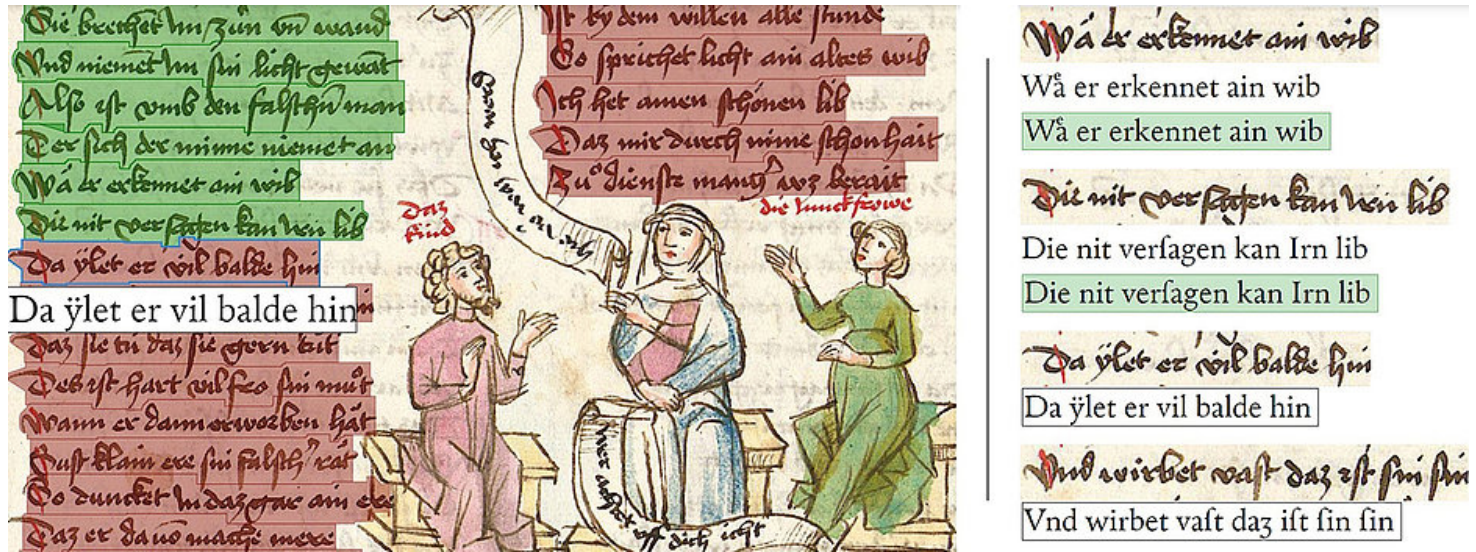 Sie brechet Im zún vn̄ wand
Vnd niemet Im sin licht gewāt
Also ist vmb den falschn̄ man
Der sich der minne niemet an
Wͤa er erkennet ain wib
Die nit versagen kan Irn lib
Da ÿlet er vil balde hin
Da ÿlet er vil balde hin
Daz sie tú daz sie gern tút
Des ist hart vil fro sin mu᷑t
Wann er dann erworben hat
Sust klain ere sin falsch᷑ rat
So duncket In daz gar ain ere
Daz er dauō mache mere
Ist by dem willen alle stunde
So sprichet licht ain altes wib
Ich het ainen schönen lib
Daz mir durch mine schonhait
Zuͦ dienste
wz berait
daz kind
die Iunckfrowe
uff dich icht
Wͤa er erkennet ain wib
Wͤa er erkennet ain wib
Wͤa er erkennet ain wib
Die nit versagen kan Irn lib
Die nit verſagen kan Irn lib
Die nit verſagen kan Irn lib
Da ÿlet er vil balde hin
Da ÿlet er vil balde hin
Vnd wirbet vast daz ist sin sin
Vnd wirbet vaſt daʒ iſt ſin ſin